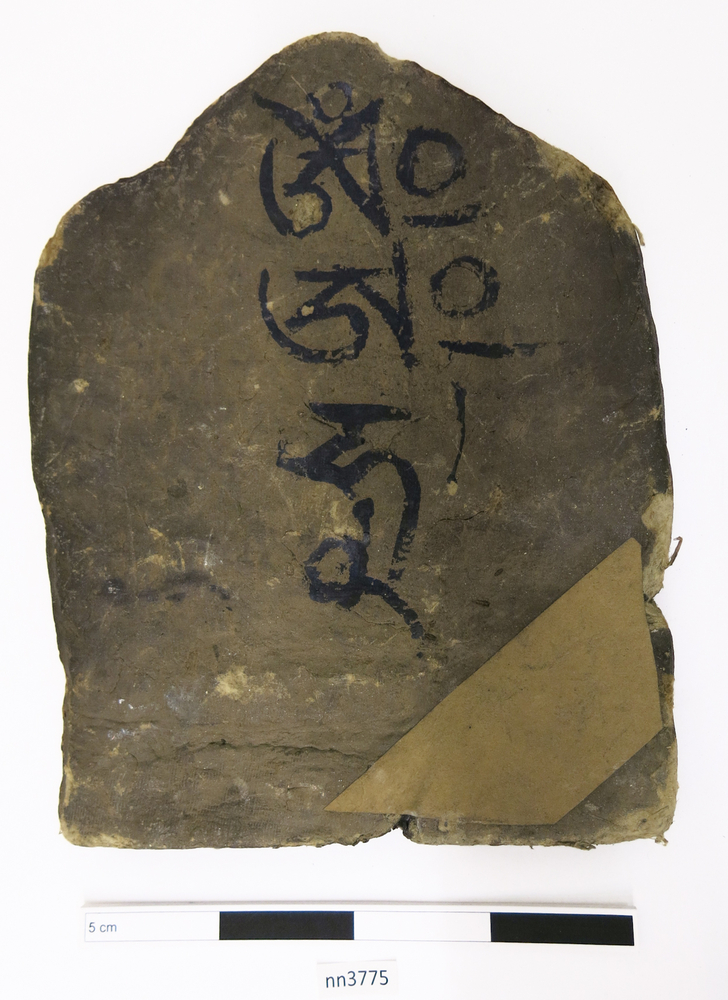 ཨོཾ
ཨ
ཧཱུ
5 cm
nn3775